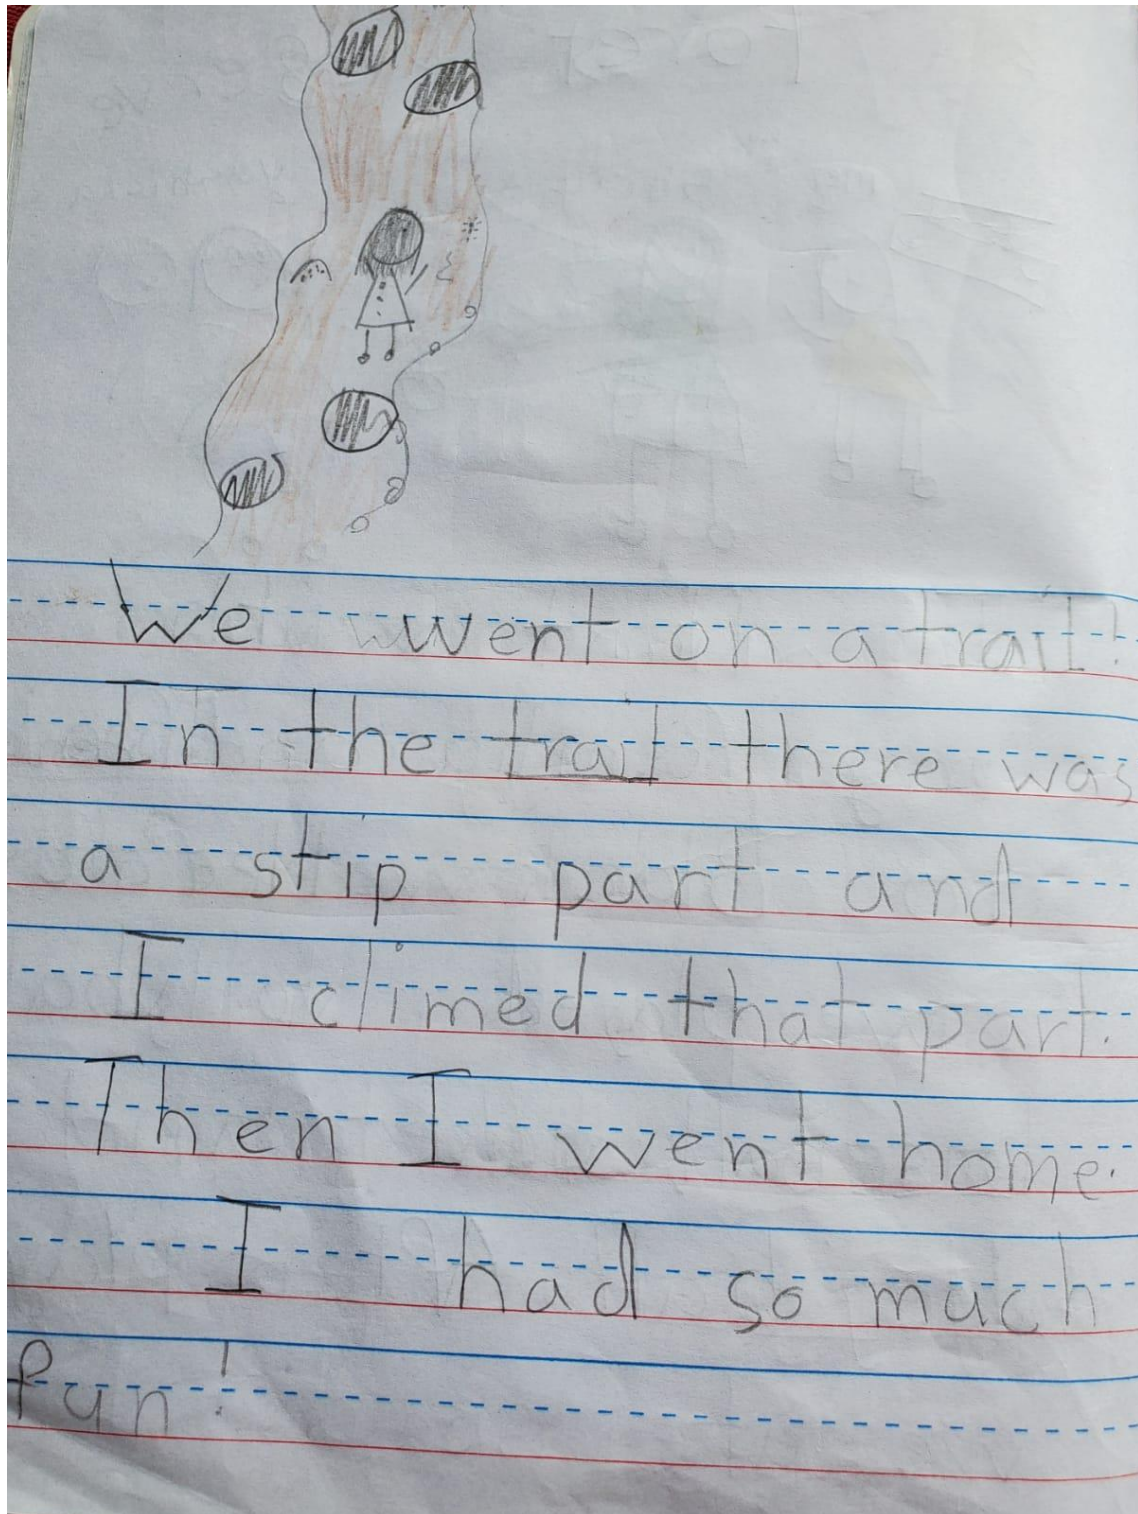 We went on a trail!
In the trail there was
a stip part and
I climed that part.
Then I went home.
I had so much
fun!